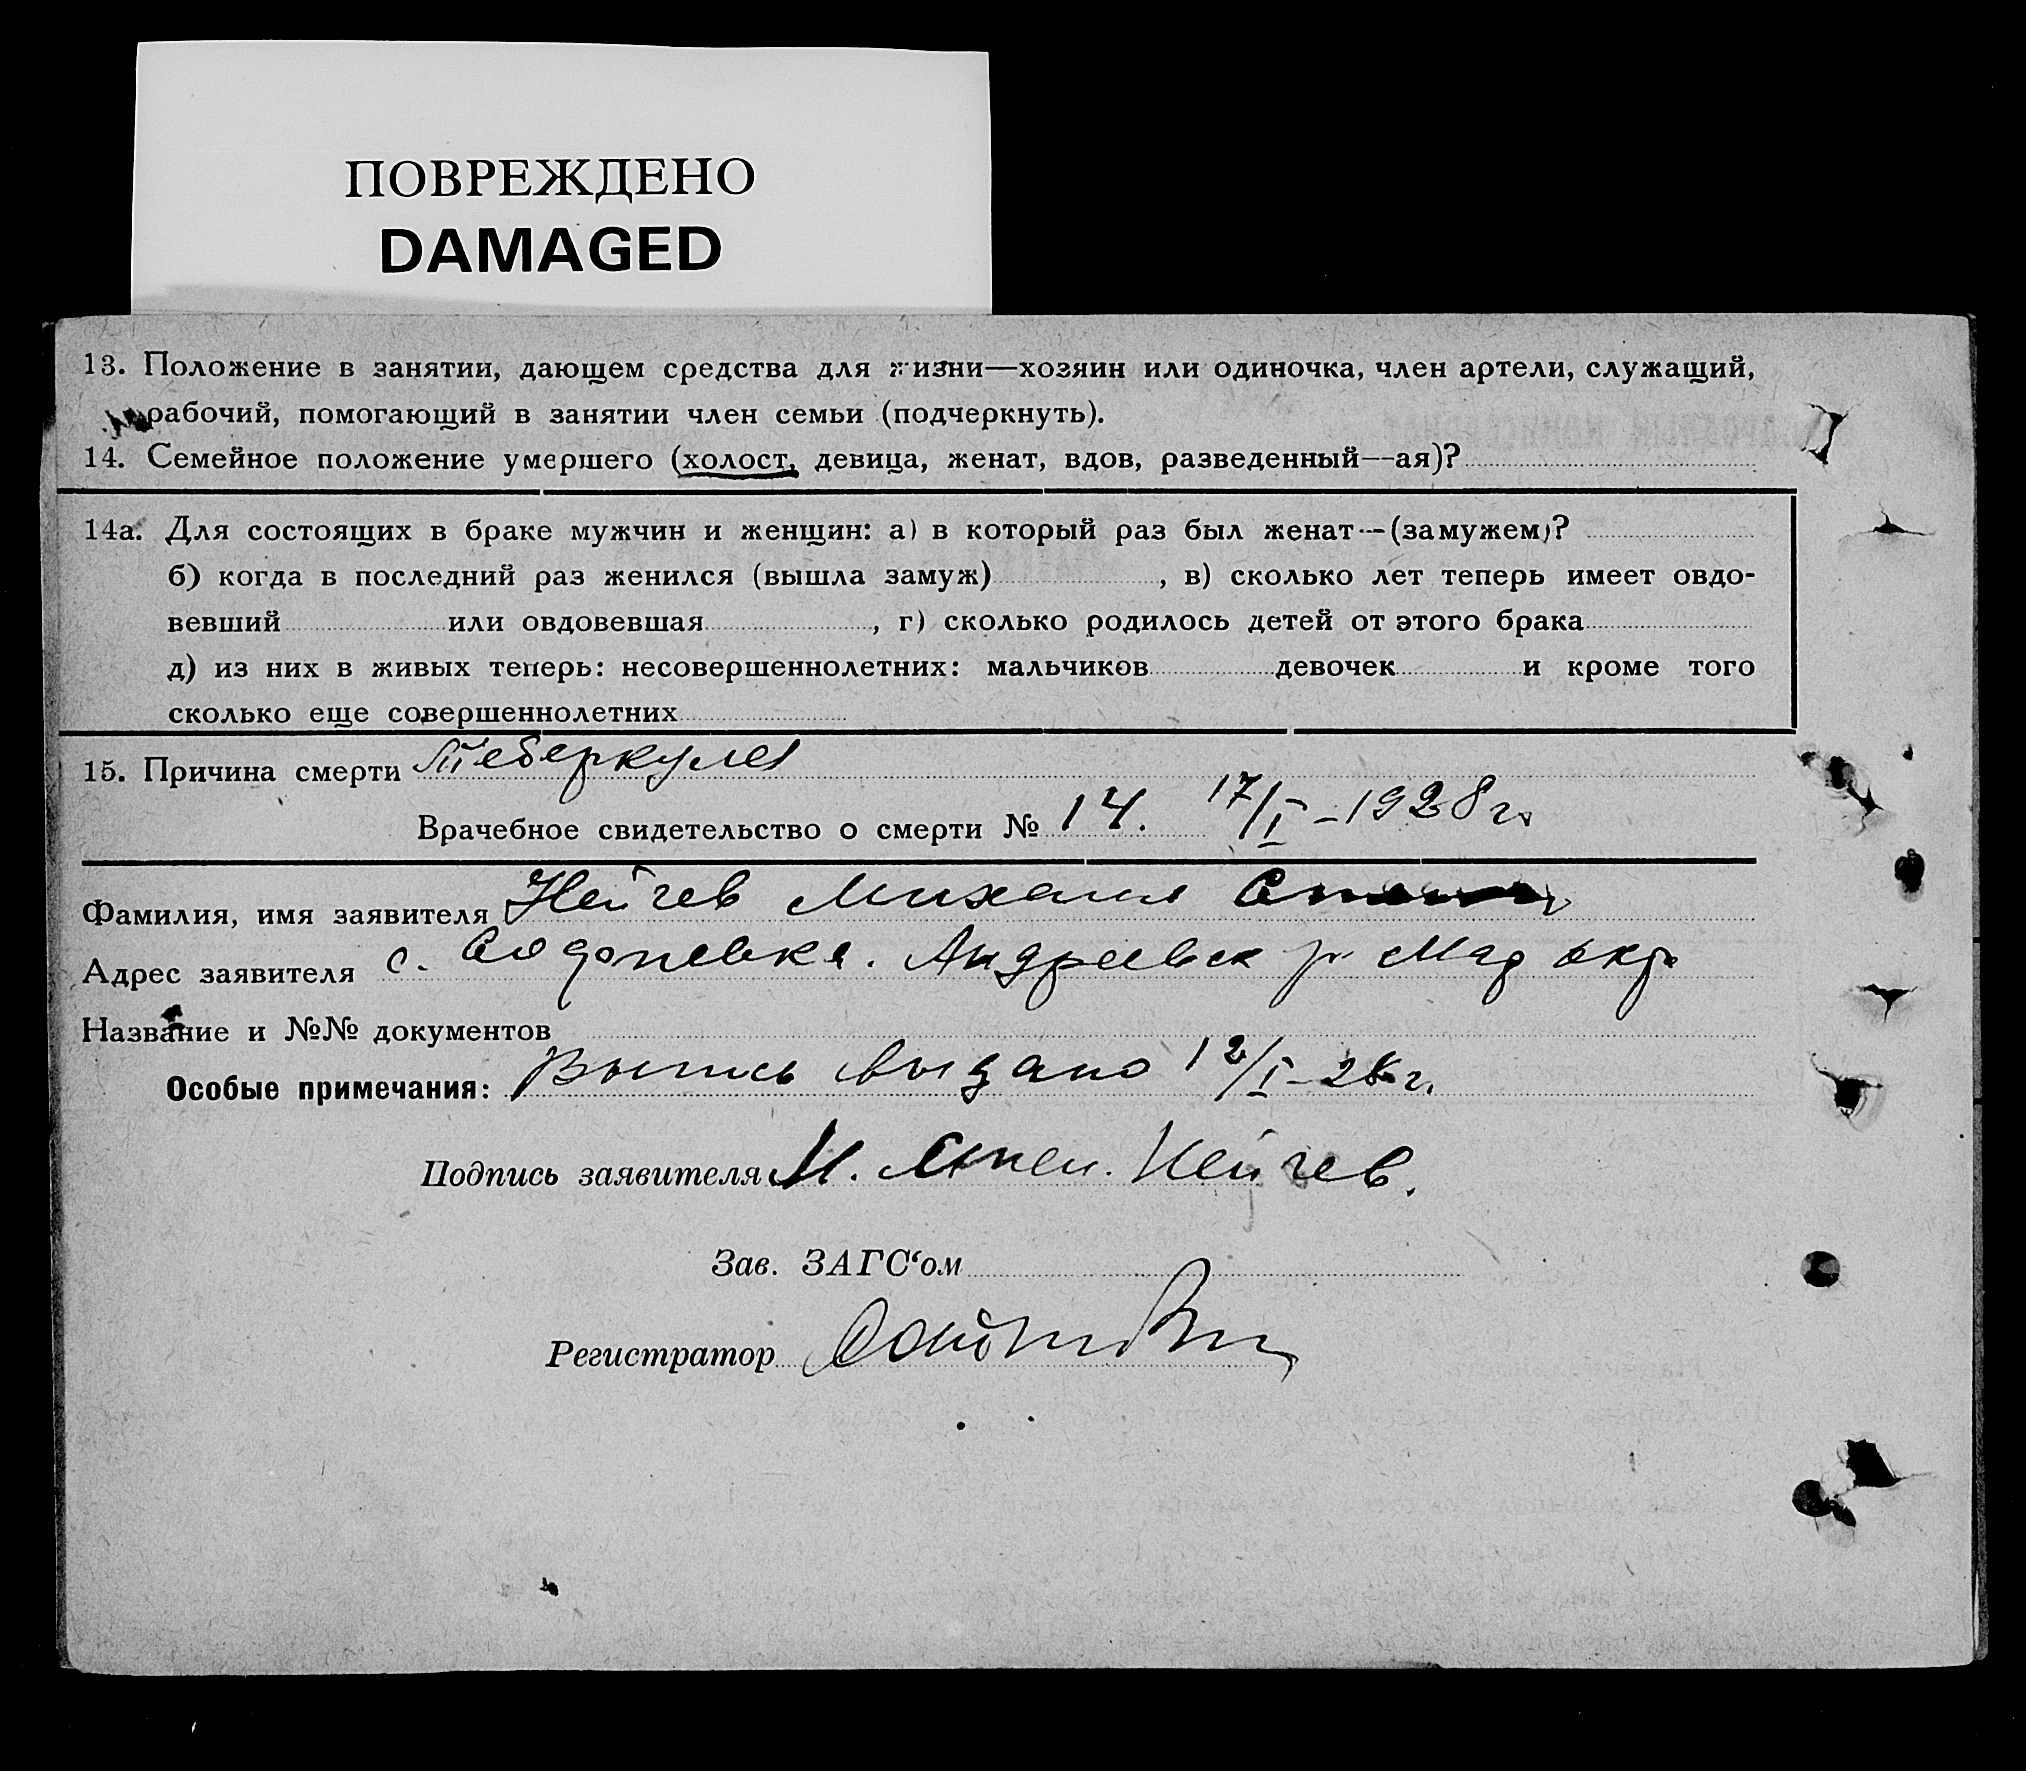 ПОВРЕЖДЕНО
DAMAGED
13. Положение в занятии, дающем средства для жизни—хозяин или одиночка, член артели, служащий,
рабочий, помогающий в занятии член семьи (подчеркнуть).
14. Семейное положение умершего (холост, девица, женат, вдов, разведенный—ая)?
14а. Для состоящих в браке мужчин и женщин: а) в который раз был женат—(замужем)?
б) когда в последний раз женился (вышла замуж) , в) сколько лет теперь имеет овдо-
вевший или овдовевшая , г) сколько родилось детей от этого брака
д) из них в живых теперь: несовершеннолетних: мальчиков девочек и кроме того
сколько еще совершеннолетних
15. Причина смерти
Врачебное свидетельство о смерти № 14. 17/I–1928 г.
Фамилия, имя заявителя Нейчев Михаил
Адрес заявителя с. Андреевск р.
Название и №№ документов
Особые примечания: Выпись выдано 12/I–28 г.
Подпись заявителя М. Нейчев.
Зав. ЗАГС‘ом
Регистратор